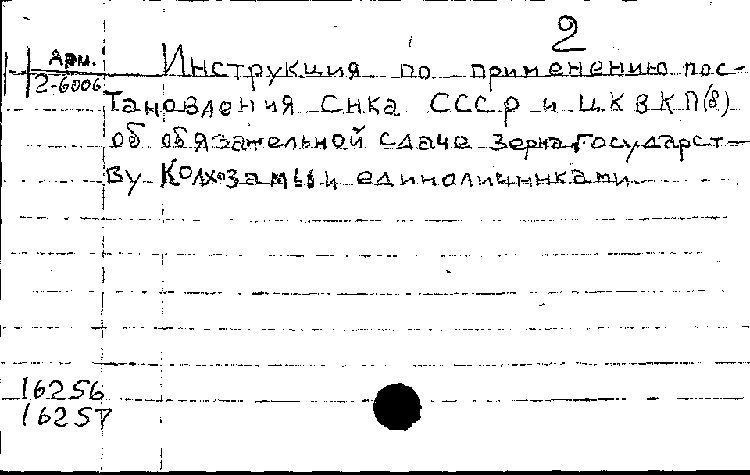 2
Арм. Инструкция по применению пос-
2-6006 тановления СНКа СССР и ЦК ВКП(б)
об обязательной сдаче зерна государст-
ву колхозами и единоличниками
16256
16257